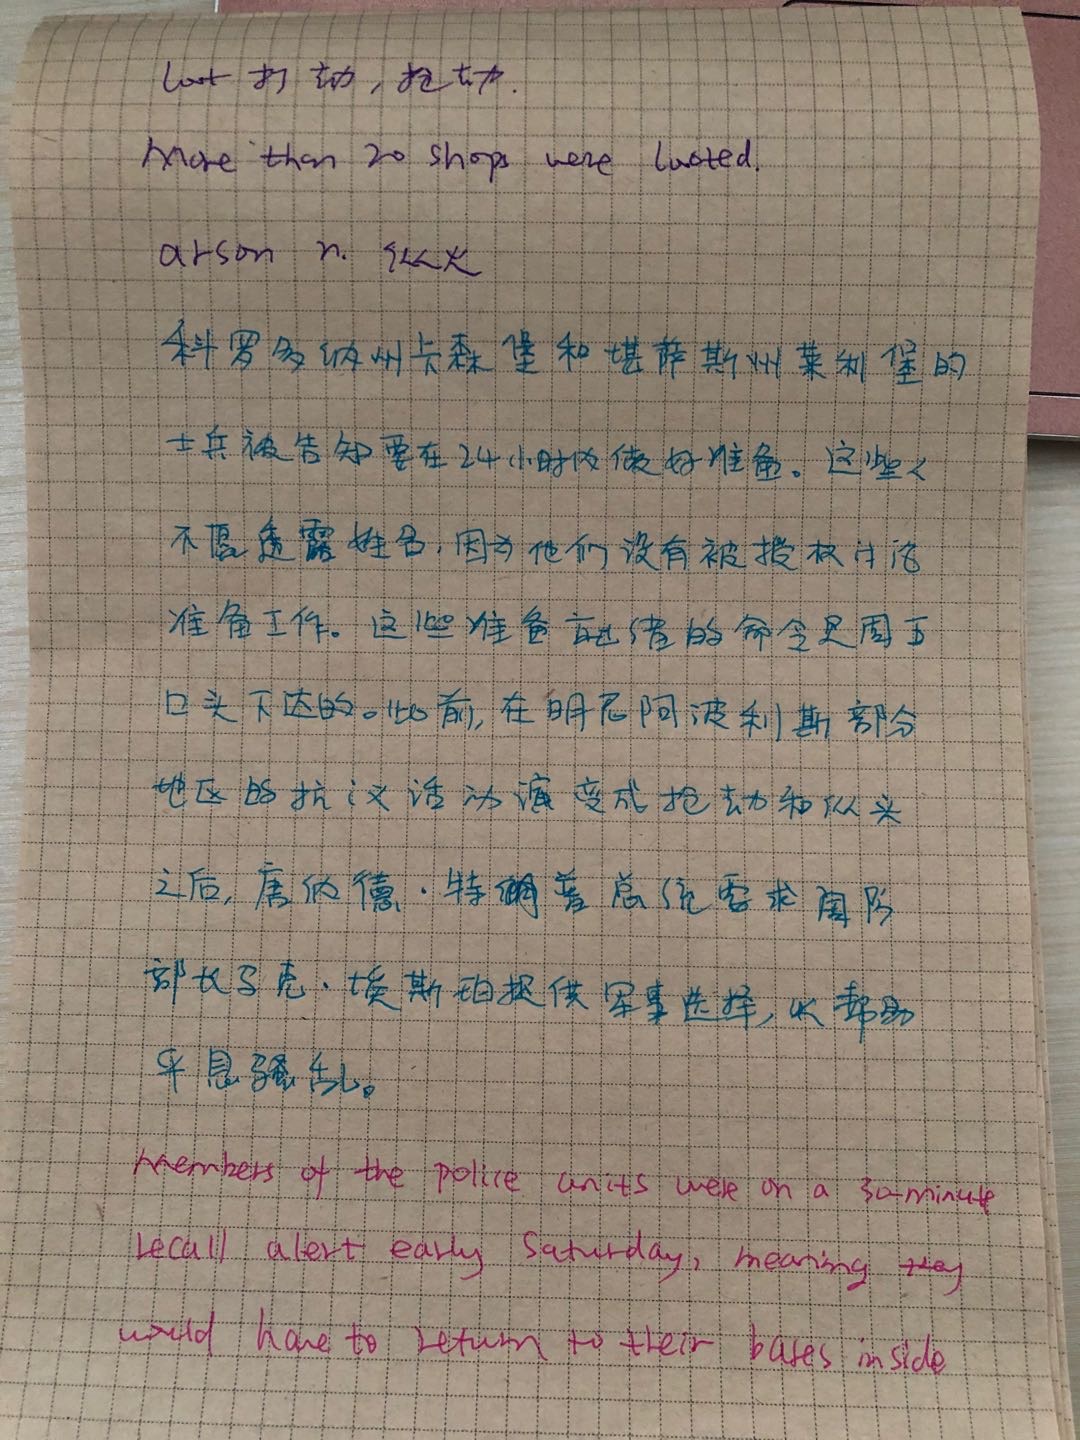 loot 打劫，抢劫.
More than 20 shops were looted.
arson n. 纵火
科罗多纳州卡森堡和堪萨斯州莱利堡的
士兵被告知要在24小时内做好准备。这些人
不愿透露姓名，因为他们没有被授权讨论
准备工作。这些准备就绪的命令是周五
口头下达的。此前，在明尼阿波利斯部分
地区的抗议活动演变成抢劫和纵火
之后，唐纳德·特朗普总统要求国防
部长马克·埃斯珀提供军事选择，以帮助
平息骚乱。
Members of the police units were on a 30-minute
recall alert early Saturday, meaning they
would have to return to their bases inside